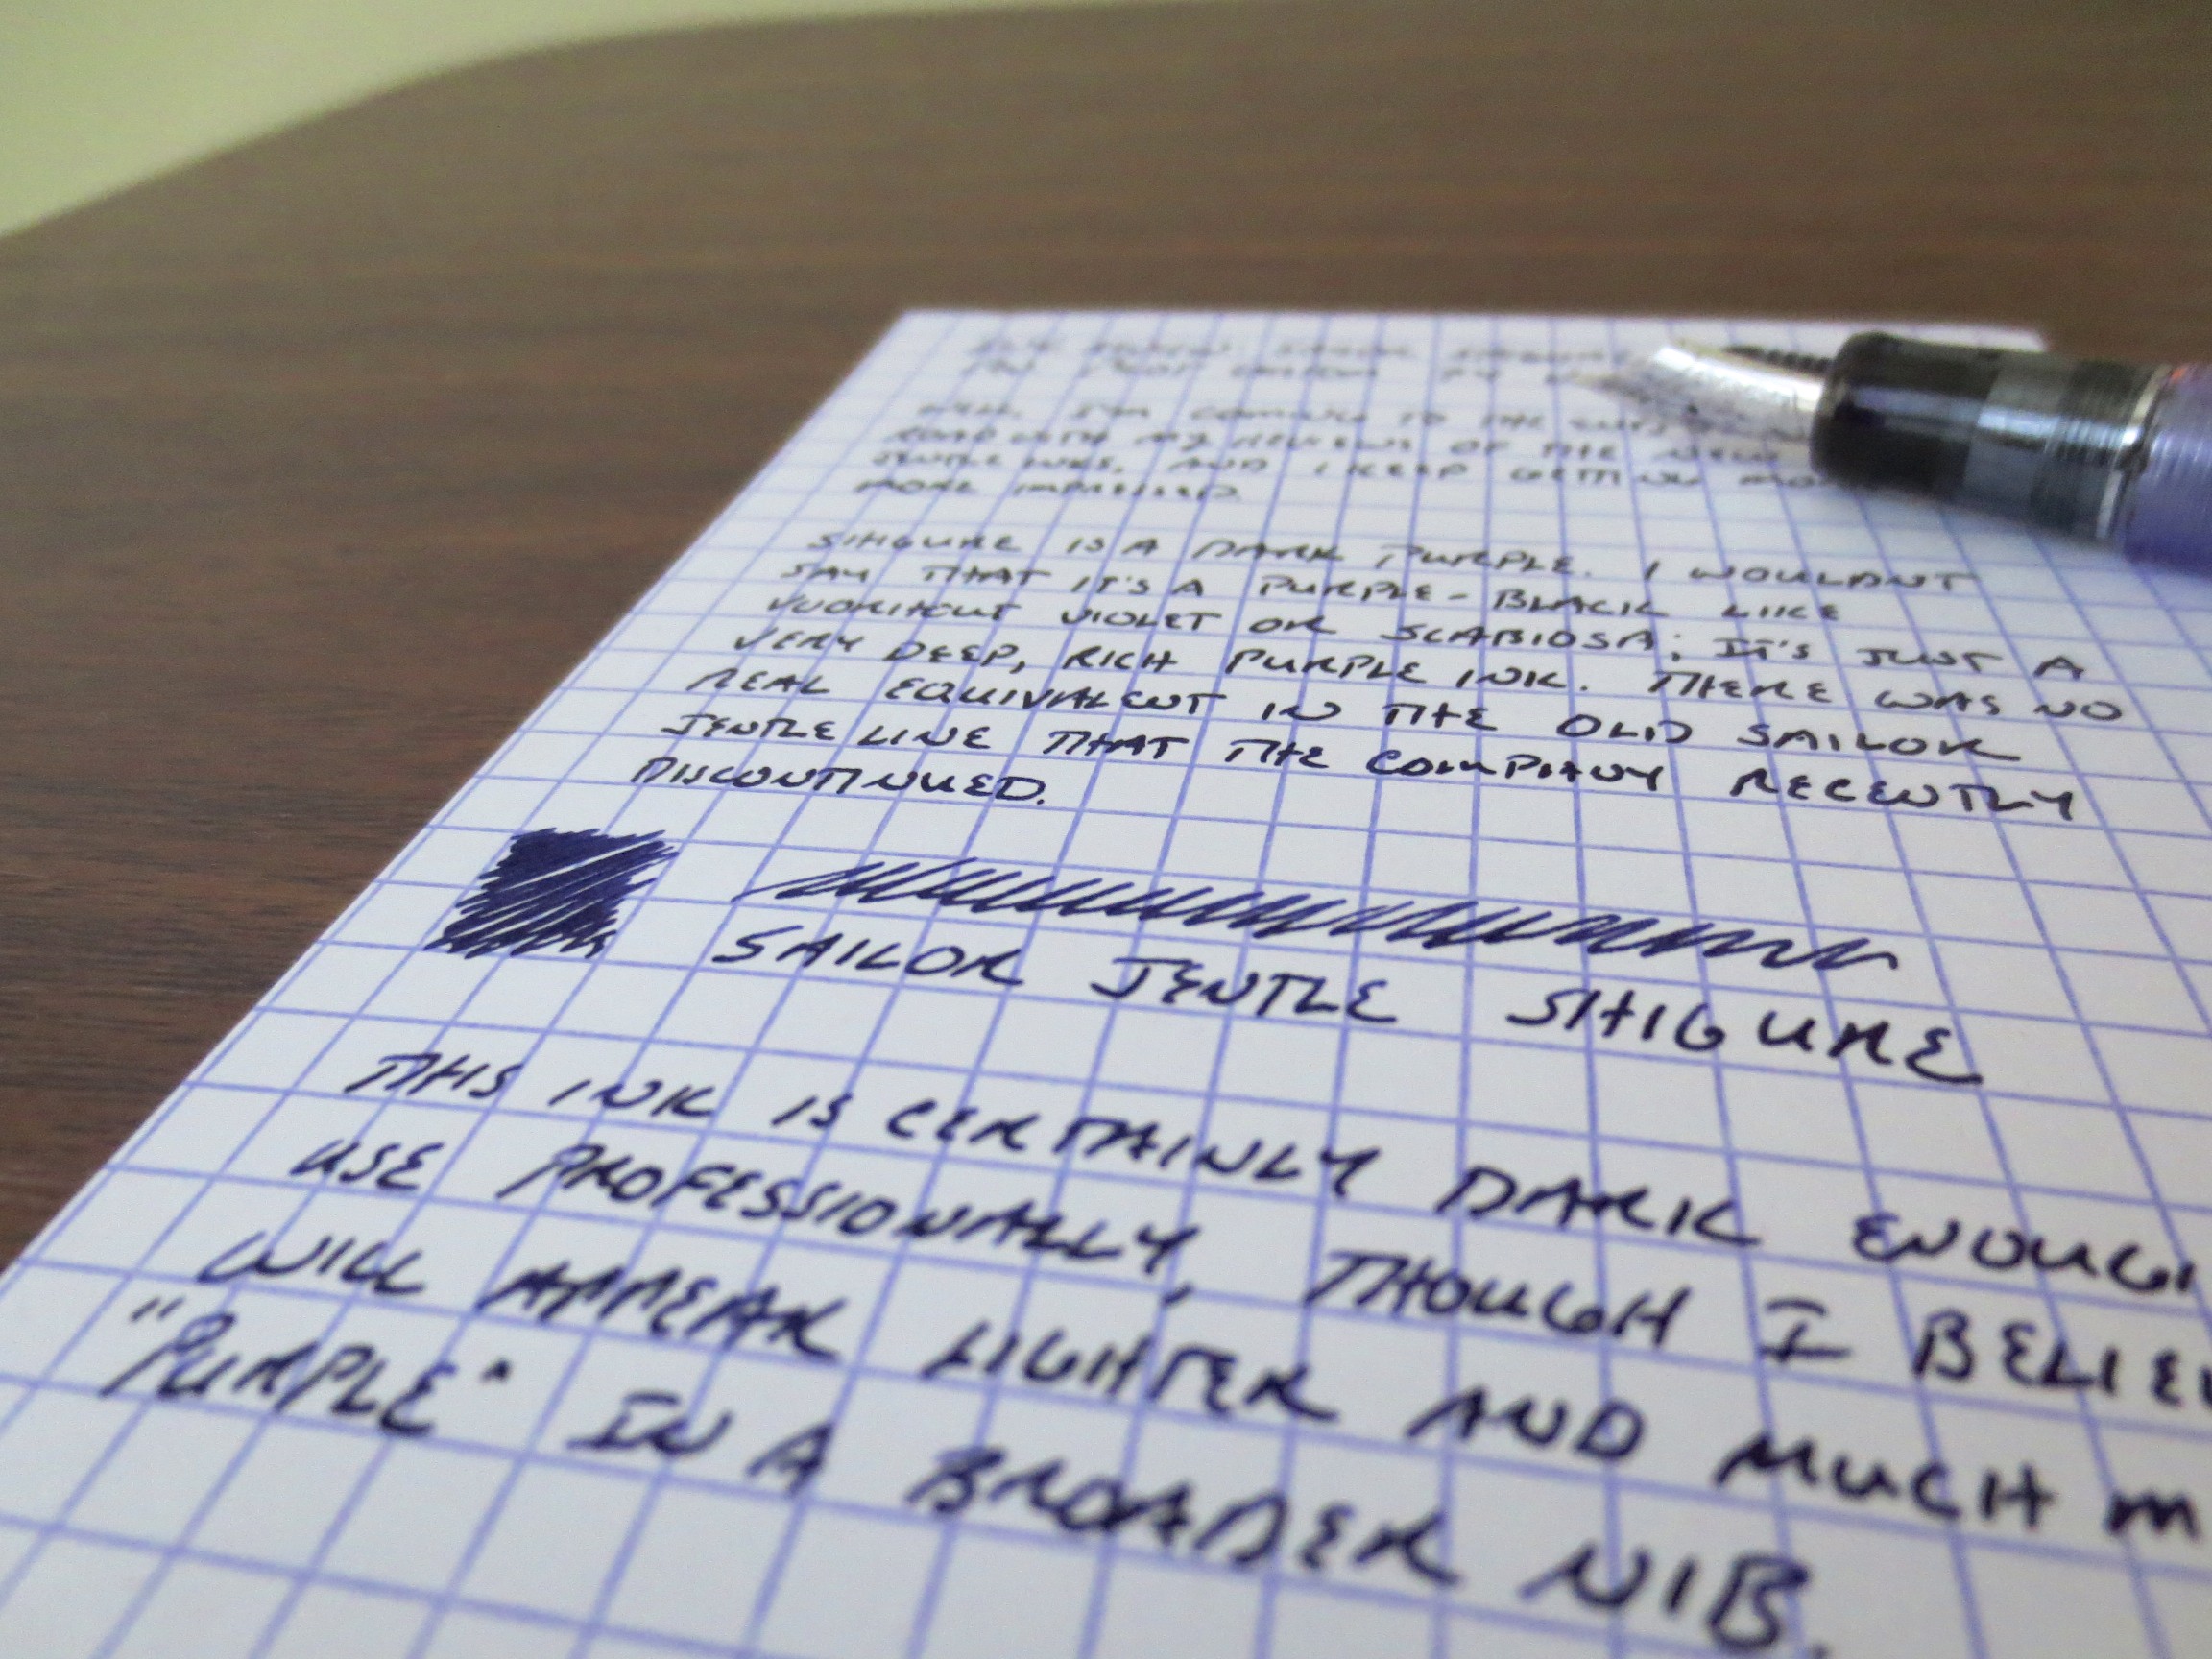 INK REVIEW: SAILOR SHIGURE
WELL, I'M COMING TO THE END
ROAD WITH MY REVIEWS OF THE NEW
JENTLE INKS, AND I KEEP GETTING MO
MORE IMPRESSED.
SHIGURE IS A DARK PURPLE. I WOULDN'T
SAY THAT IT'S A PURPLE-BLACK LIKE
VIOLET OR SCABIOSA; IT'S JUST A
VERY DEEP, RICH PURPLE INK. THERE WAS NO
REAL EQUIVALENT IN THE OLD SAILOR
JENTLE LINE THAT THE COMPANY RECENTLY
DISCONTINUED.
SAILOR JENTLE SHIGURE
THIS INK IS CERTAINLY DARK ENOUGH
USE PROFESSIONALLY, THOUGH I BELIEV
WILL APPEAR LIGHTER AND MUCH M
"PURPLE" IN A BROADER NIB.